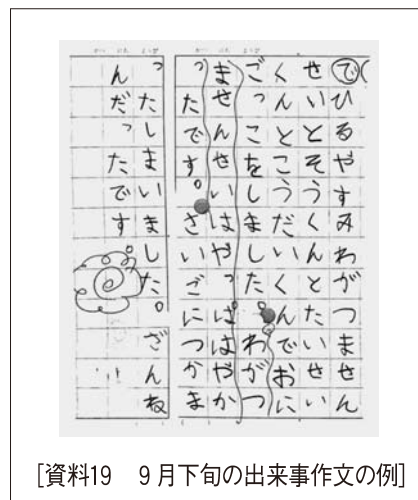 でひるやすみわがつません
せいとそうくんとたいせい
くんとこうだいくんでおに
ごっこをしました。わがつ
ませんせいはやっぱはやか
ったです。さいごにつかま
ったしまいました。ざんね
んだったです
[資料19　9月下旬の出来事作文の例]